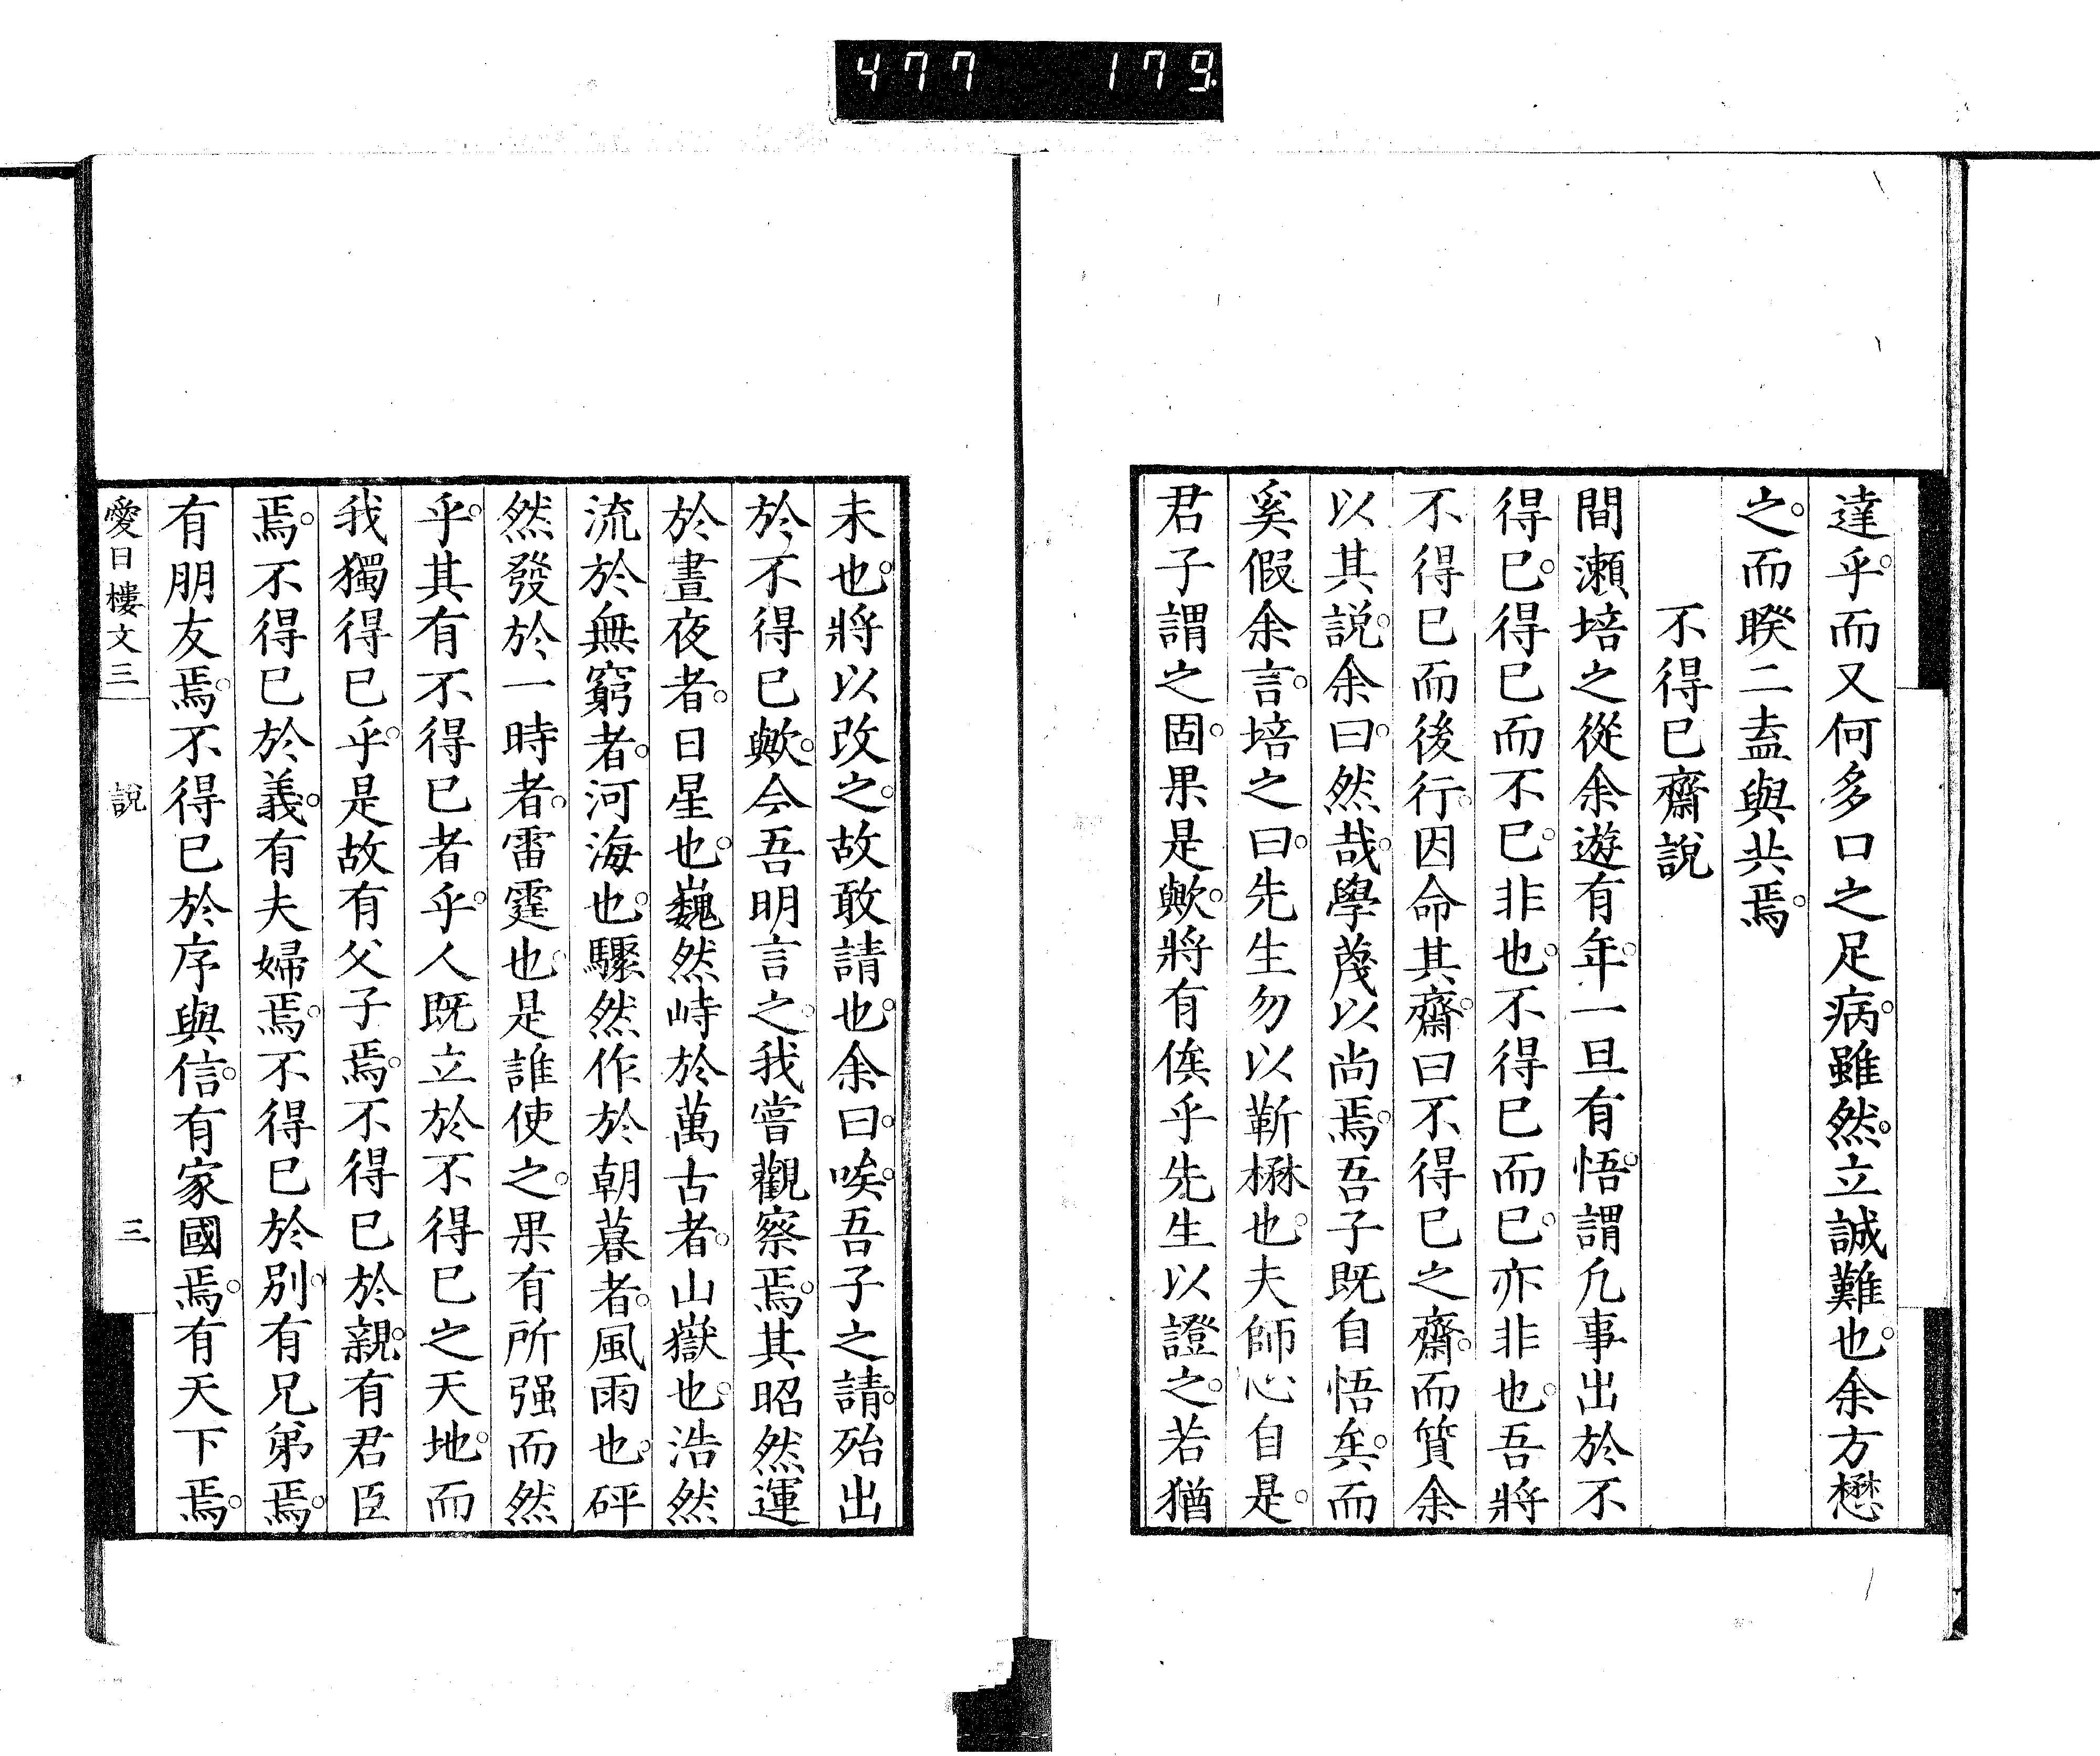 477 179.
達乎。而又何多口之足病。雖然。立誠難也。余方懋
之。而睽二盍與共焉。
不得已齋說
間瀨培之從余遊有年。一旦有悟。謂凢事出於不
得已。得已而不已。非也。不得已而已。亦非也。吾將
不得已而後行。因命其齋。曰不得已之齋。而質余
以其說。余曰。然哉。學蔑以尚焉。吾子既自悟矣。而
奚假余言。培之曰。先生勿以靳楙也。夫師心自是。
君子謂之固。果是歟。將有俟乎先生以證之。若猶
未也。將以改之。故敢請也。余曰。唉。吾子之請。殆出
於不得已歟。今吾明言之。我嘗觀察焉。其昭然運
於晝夜者。日星也。巍然峙於萬古者。山嶽也。浩然
流於無窮者。河海也。驟然作於朝暮者。風雨也。砰
然發於一時者。雷霆也。是誰使之。果有所强而然
乎。其有不得已者乎。人既立於不得已之天地。而
我獨得已乎。是故有父子焉。不得已於親。有君臣
焉。不得已於義。有夫婦焉。不得已於別。有兄弟焉。
有朋友焉。不得已於序與信。有家國焉。有天下焉。
愛日樓文三 說 三